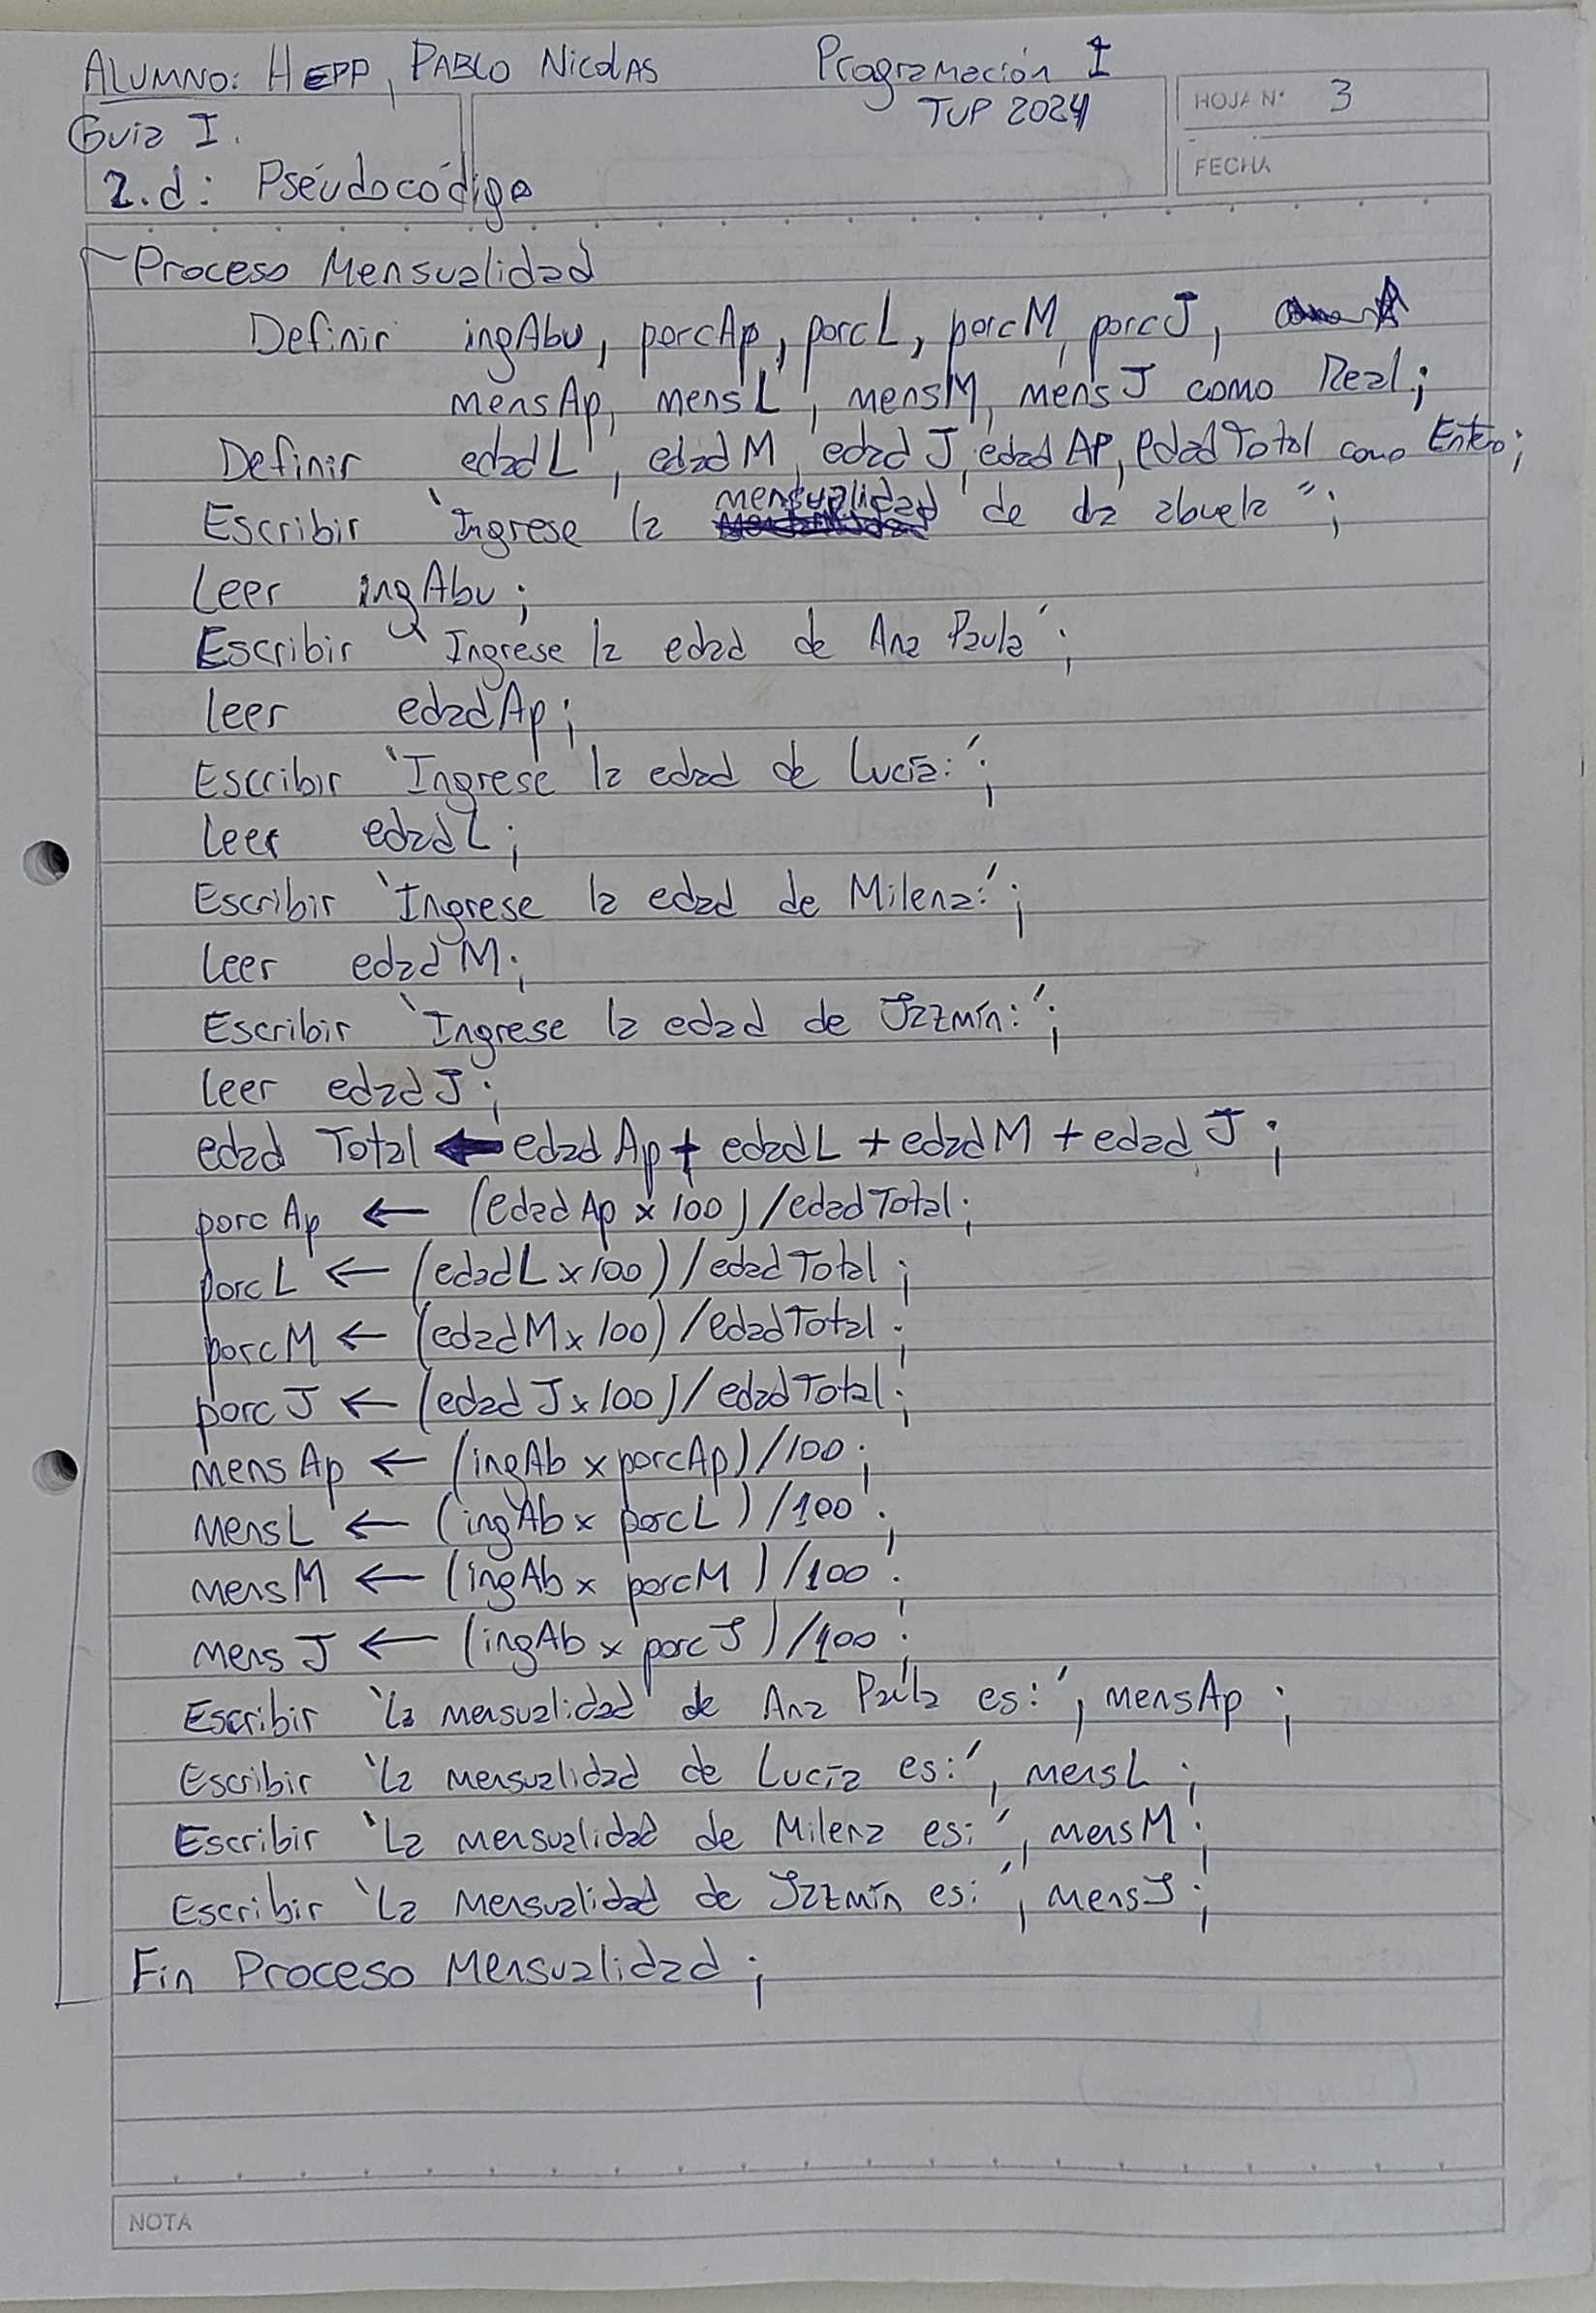 ALUMNO: HEPP, PABLO NICOLAS Programación I
TUP 2024
HOJA N° 3
Guia I.
FECHA
2.d: Pseudocódigo
Proceso Mensualidad
Definir ingAbu, porcAp, porcL, porcM, porcJ,
mensAp, mensL, mensM, mensJ como Real;
Definir edadL, edadM, edadJ, edadAP, edadTotal como Entero;
Escribir 'Ingrese la mensualidad de da abuela";
Leer ingAbu;
Escribir 'Ingrese la edad de Ana Paula';
Leer edadAp;
Escribir 'Ingrese la edad de Lucía:';
Leer edadL;
Escribir 'Ingrese la edad de Milena:';
Leer edadM;
Escribir 'Ingrese la edad de Jazmín:';
Leer edadJ;
edad Total ← edadAp + edadL + edadM + edadJ;
porcAp ← (edadAp x 100)/edadTotal;
porcL ← (edadL x 100)/edadTotal;
porcM ← (edadM x 100)/edadTotal;
porcJ ← (edadJ x 100)/edadTotal;
mensAp ← (ingAb x porcAp)/100;
mensL ← (ingAb x porcL)/100;
mensM ← (ingAb x porcM)/100;
mensJ ← (ingAb x porcJ)/100;
Escribir 'La mensualidad de Ana Paula es:', mensAp;
Escribir 'La mensualidad de Lucía es:', mensL;
Escribir 'La mensualidad de Milena es:', mensM;
Escribir 'La mensualidad de Jazmín es:', mensJ;
Fin Proceso Mensualidad;
NOTA